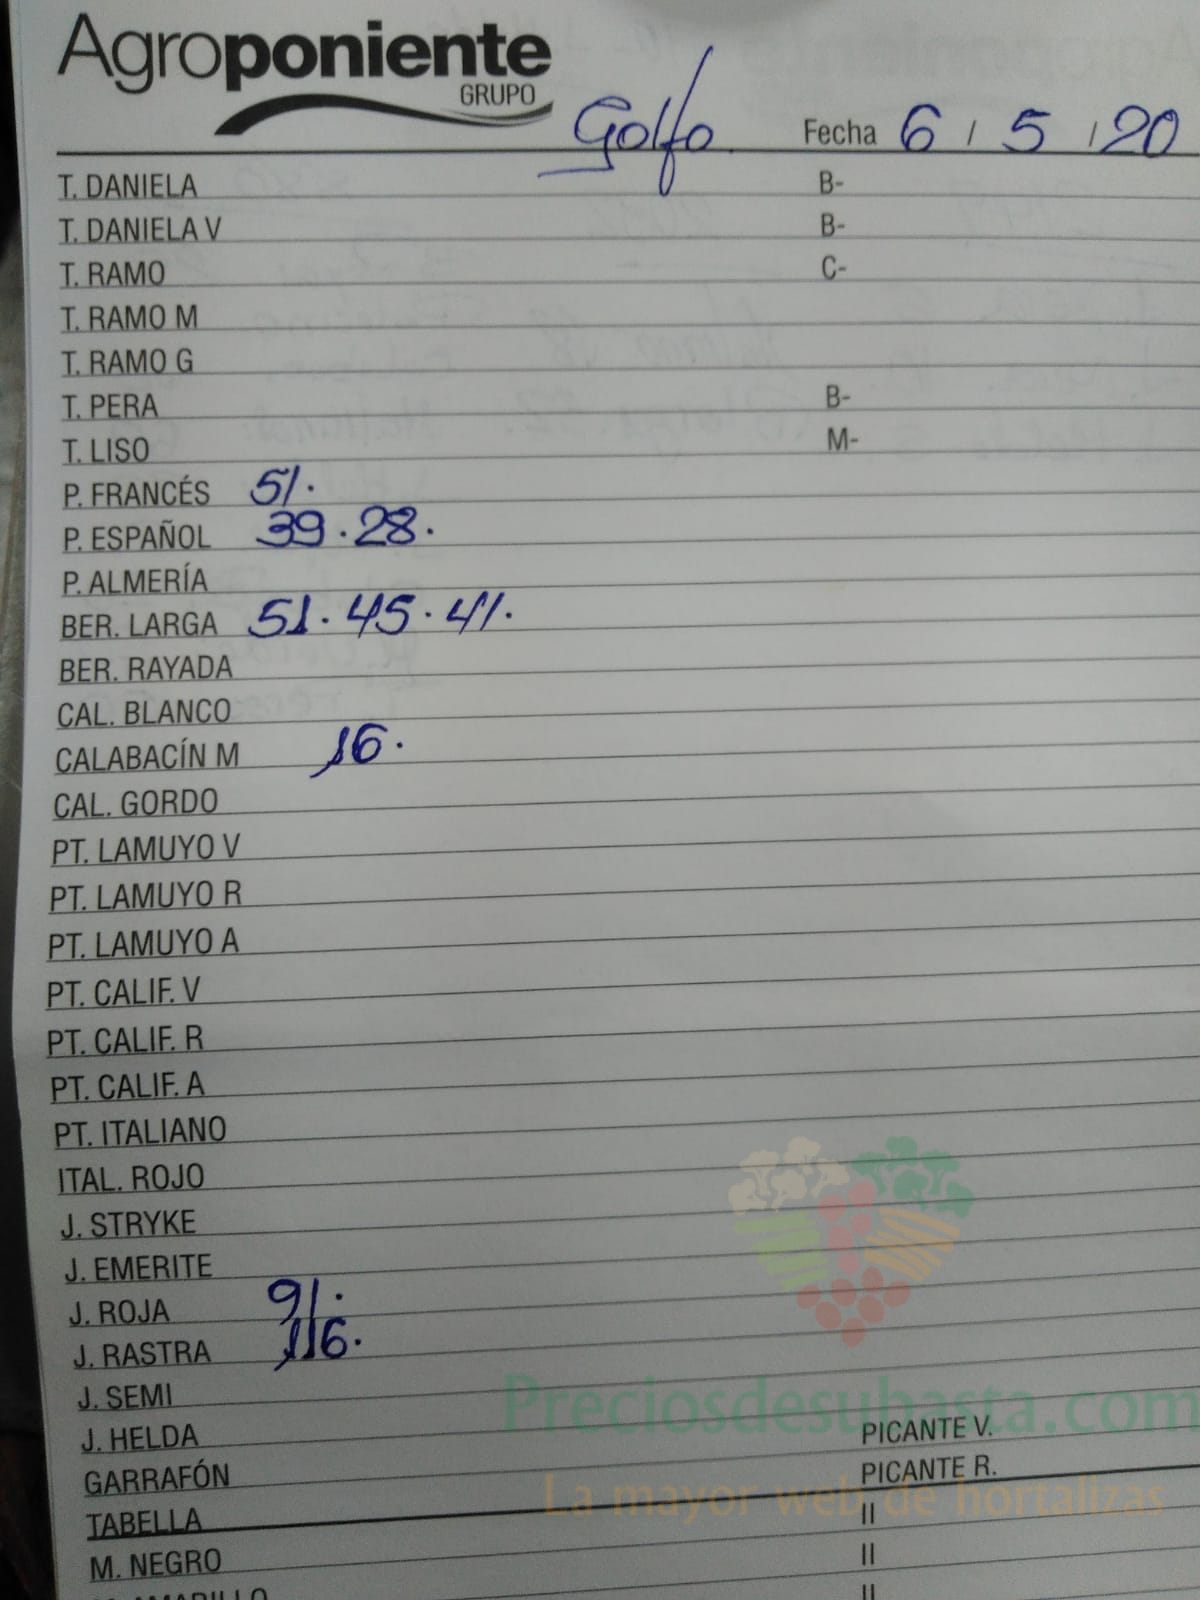 Agroponiente
GRUPO
Golfo Fecha 6 / 5 / 20
T. DANIELA B-
T. DANIELA V B-
T. RAMO C-
T. RAMO M
T. RAMO G
T. PERA B-
T. LISO M-
P. FRANCÉS 51.
P. ESPAÑOL 39.28.
P. ALMERÍA
BER. LARGA 51.45.41.
BER. RAYADA
CAL. BLANCO
CALABACÍN M 16.
CAL. GORDO
PT. LAMUYO V
PT. LAMUYO R
PT. LAMUYO A
PT. CALIF. V
PT. CALIF. R
PT. CALIF. A
PT. ITALIANO
ITAL. ROJO
J. STRYKE
J. EMERITE
J. ROJA 91.
J. RASTRA 116.
J. SEMI
Preciosdesubasta.com
J. HELDA PICANTE V.
GARRAFÓN PICANTE R.
La mayor web de hortalizas
TABELLA II
M. NEGRO II
II